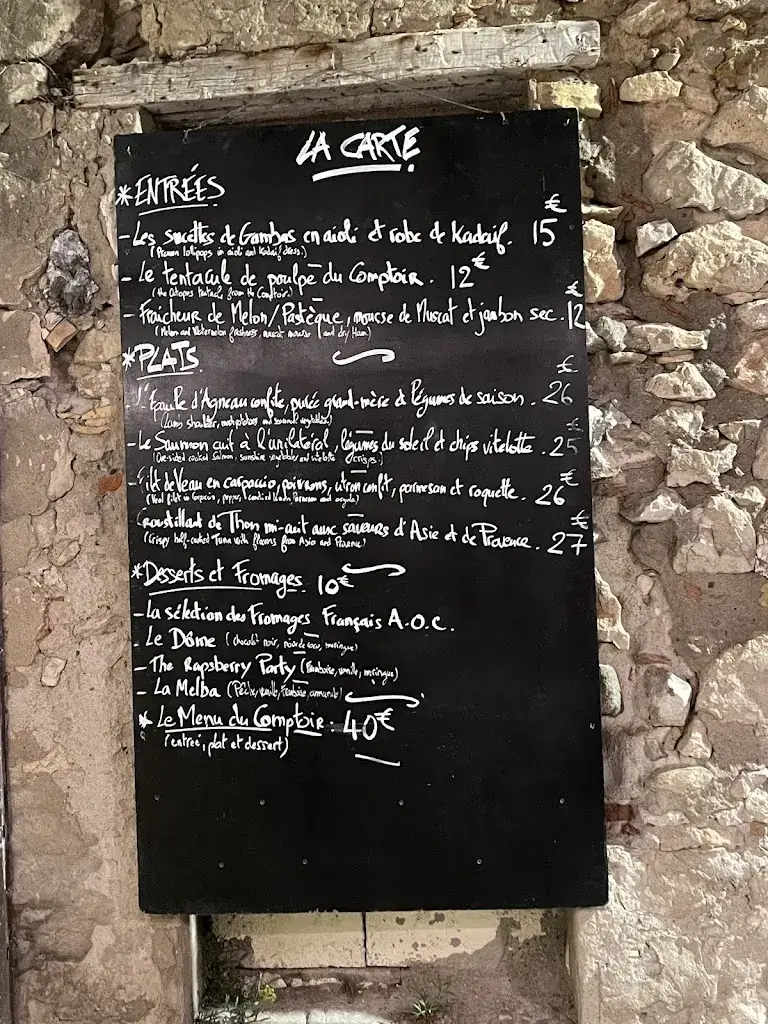 LA CARTE
*ENTRÉES
€
- Les sucettes de Gambas en aïoli et robe de Kadaïf. 15
(Prawn lollipops in aïoli and Kadaïf dress.)
- Le tentacule de poulpe du Comptoir. 12€
(the Octopus tentacle from the Comptoir.)
€
- Fraîcheur de Melon/Pastèque, mousse de Muscat et jambon sec. 12
(Melon and Watermelon freshness, muscat mousse and dry Ham)
*PLATS
€
L'Épaule d'Agneau confite, purée grand-mère et légumes de saison. 26
(Lamb shoulder, mash potatoes and seasonal vegetables)
€
- Le Saumon cuit à l'unilatéral, légumes du soleil et chips vitelotte. 25
(One-sided cooked Salmon, sunshine vegetables and vitelotte crisps.)
€
Filet de Veau en carpaccio, poivrons, citron confit, parmesan et roquette. 26
(Veal filet in carpaccio, pepper, candied lemon, Parmesan and arugula)
€
Croustillant de Thon mi-cuit aux saveurs d'Asie et de Provence. 27
(Crispy half-cooked Tuna with flavors from Asia and Provence)
*Desserts et Fromages. 10€
- La sélection des Fromages Français A.O.C.
- Le Dôme (chocolat noir, noix de coco, meringue)
- The Rapsberry Party (framboise, vanille, meringue)
- La Melba (Pêche, vanille, framboise, amande)
* Le Menu du Comptoir : 40€
(entrée, plat et dessert)